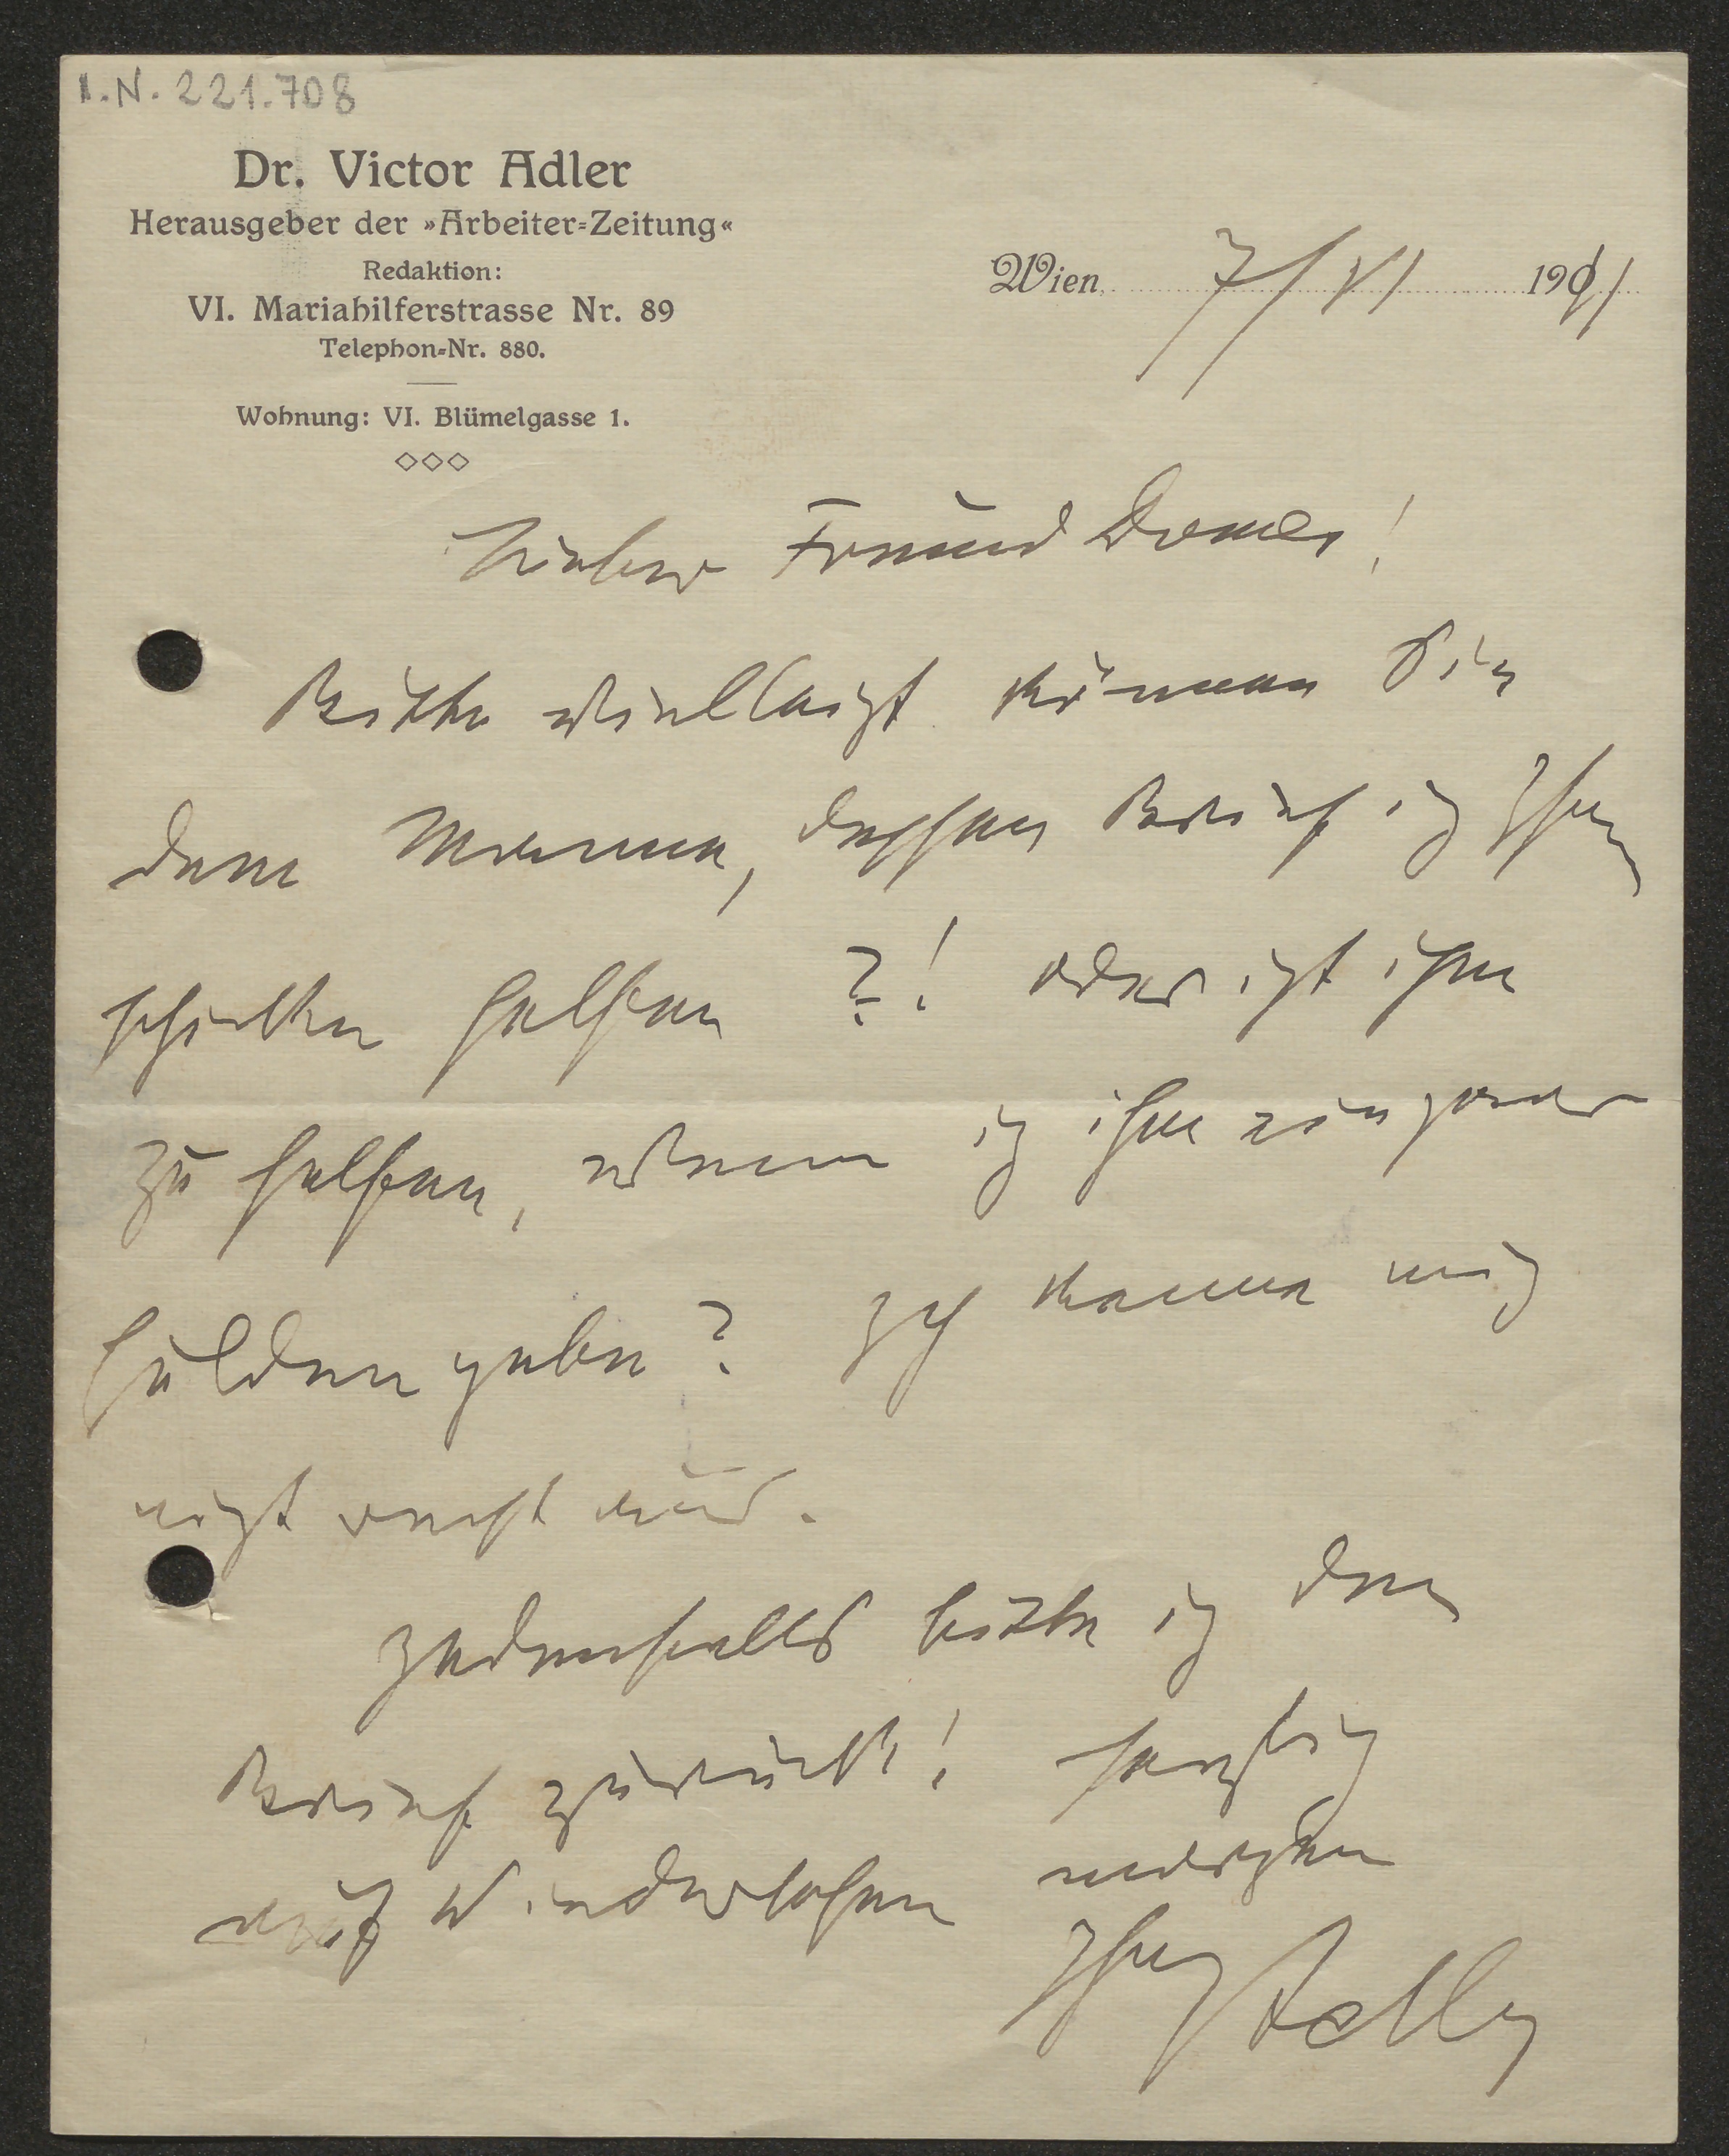 I.N. 221.708
Dr. Victor Adler
Herausgeber der »Arbeiter-Zeitung«
Redaktion:
VI. Mariahilferstrasse Nr. 89
Telephon-Nr. 880.
Wohnung: VI. Blümelgasse 1.
Wien 7/VI 1911
Lieber Freund Domes!
Bitte vielleicht können Sie
dem Manne, dessen Brief ich Ihnen
schicke helfen?! Oder ist ihm
zu helfen, wenn ich ihm ein paar
Gulden gebe? Ich kenne mich
nicht recht aus.
Jedenfalls bitte ich den
Brief zurück! Herzlich
auf Wiedersehen morgen
Ihr VAdler